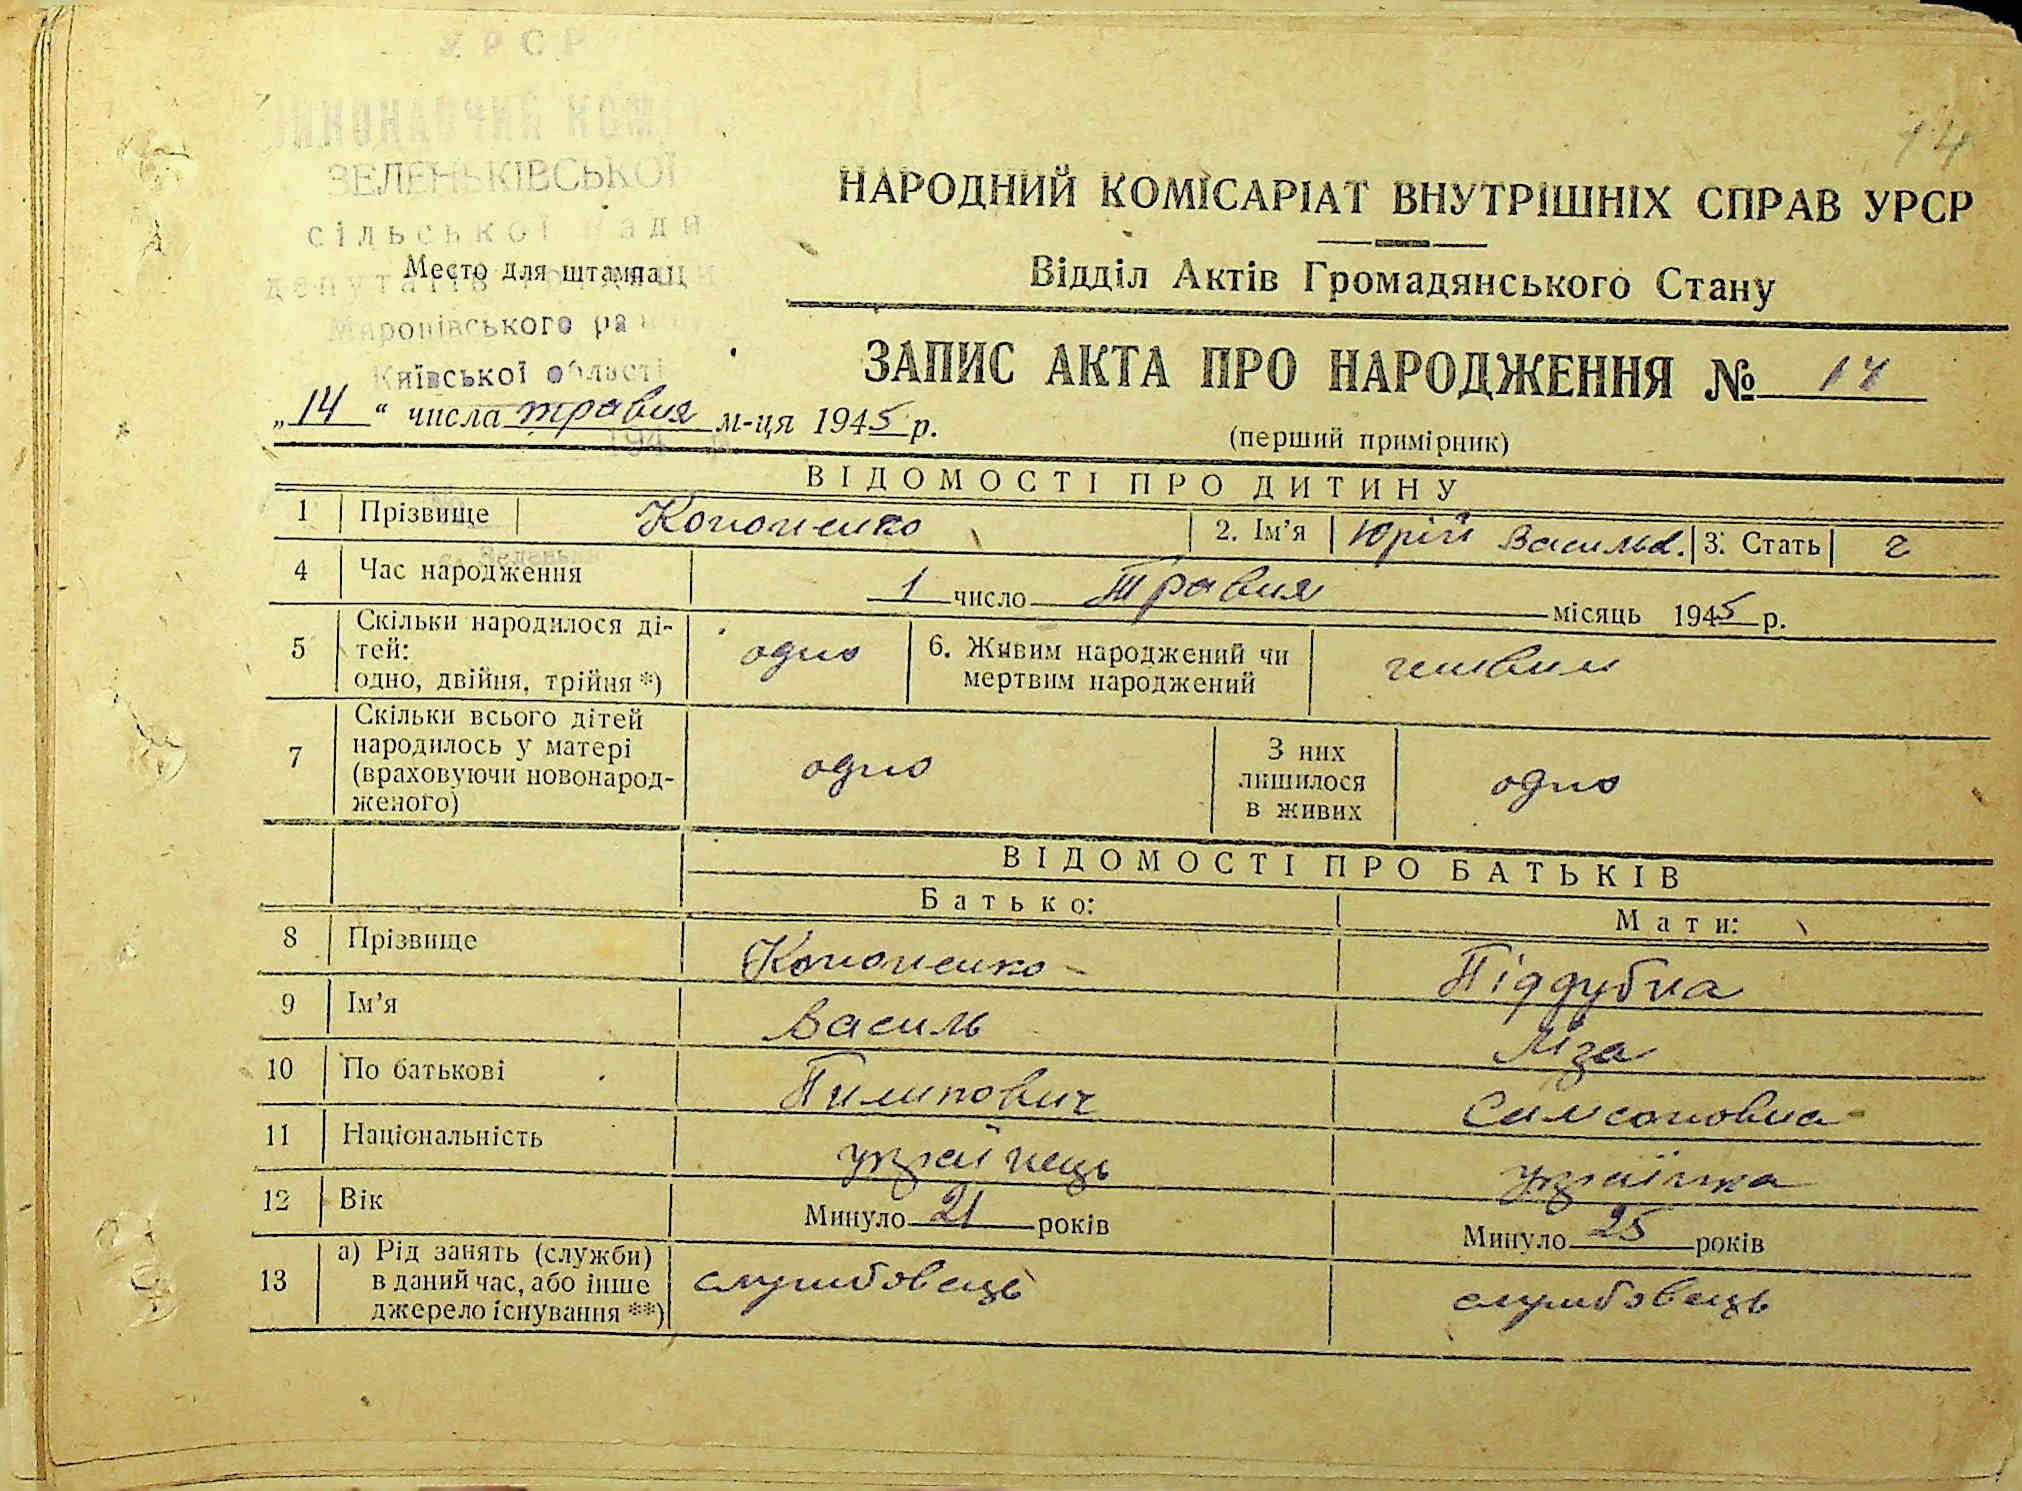 УРСР
ЗЕЛЕНЬКІВСЬКОЇ
сільської Ради
Место для штампа
Київської області
14
НАРОДНИЙ КОМІСАРІАТ ВНУТРІШНІХ СПРАВ УРСР
Відділ Актів Громадянського Стану
ЗАПИС АКТА ПРО НАРОДЖЕННЯ № 14
„14“ числа травня м-ця 1945 р.
(перший примірник)
ВІДОМОСТІ ПРО ДИТИНУ
1 Прізвище Кононенко 2. Ім’я Юрій Васильв. 3. Стать ч
4 Час народження 1 число Травня місяць 1945 р.
5 Скільки народилося ді-
тей:
одно, двійня, трійня *) одно 6. Живим народжений чи
мертвим народжений живим
7 Скільки всього дітей
народилось у матері
(враховуючи новонарод-
женого) одно З них
лишилося
в живих одно
ВІДОМОСТІ ПРО БАТЬКІВ
Батько: Мати:
8 Прізвище Кононенко Піддубна
9 Ім’я Василь Ліза
10 По батькові Пилипович Самсоновна
11 Національність українець українка
12 Вік Минуло 21 років Минуло 25 років
13 а) Рід занять (служби)
в даний час, або інше
джерело існування **) службовець службовець